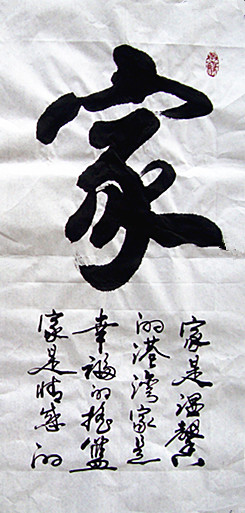 家
家是温馨
的港湾家是
幸福的摇篮
家是情感的